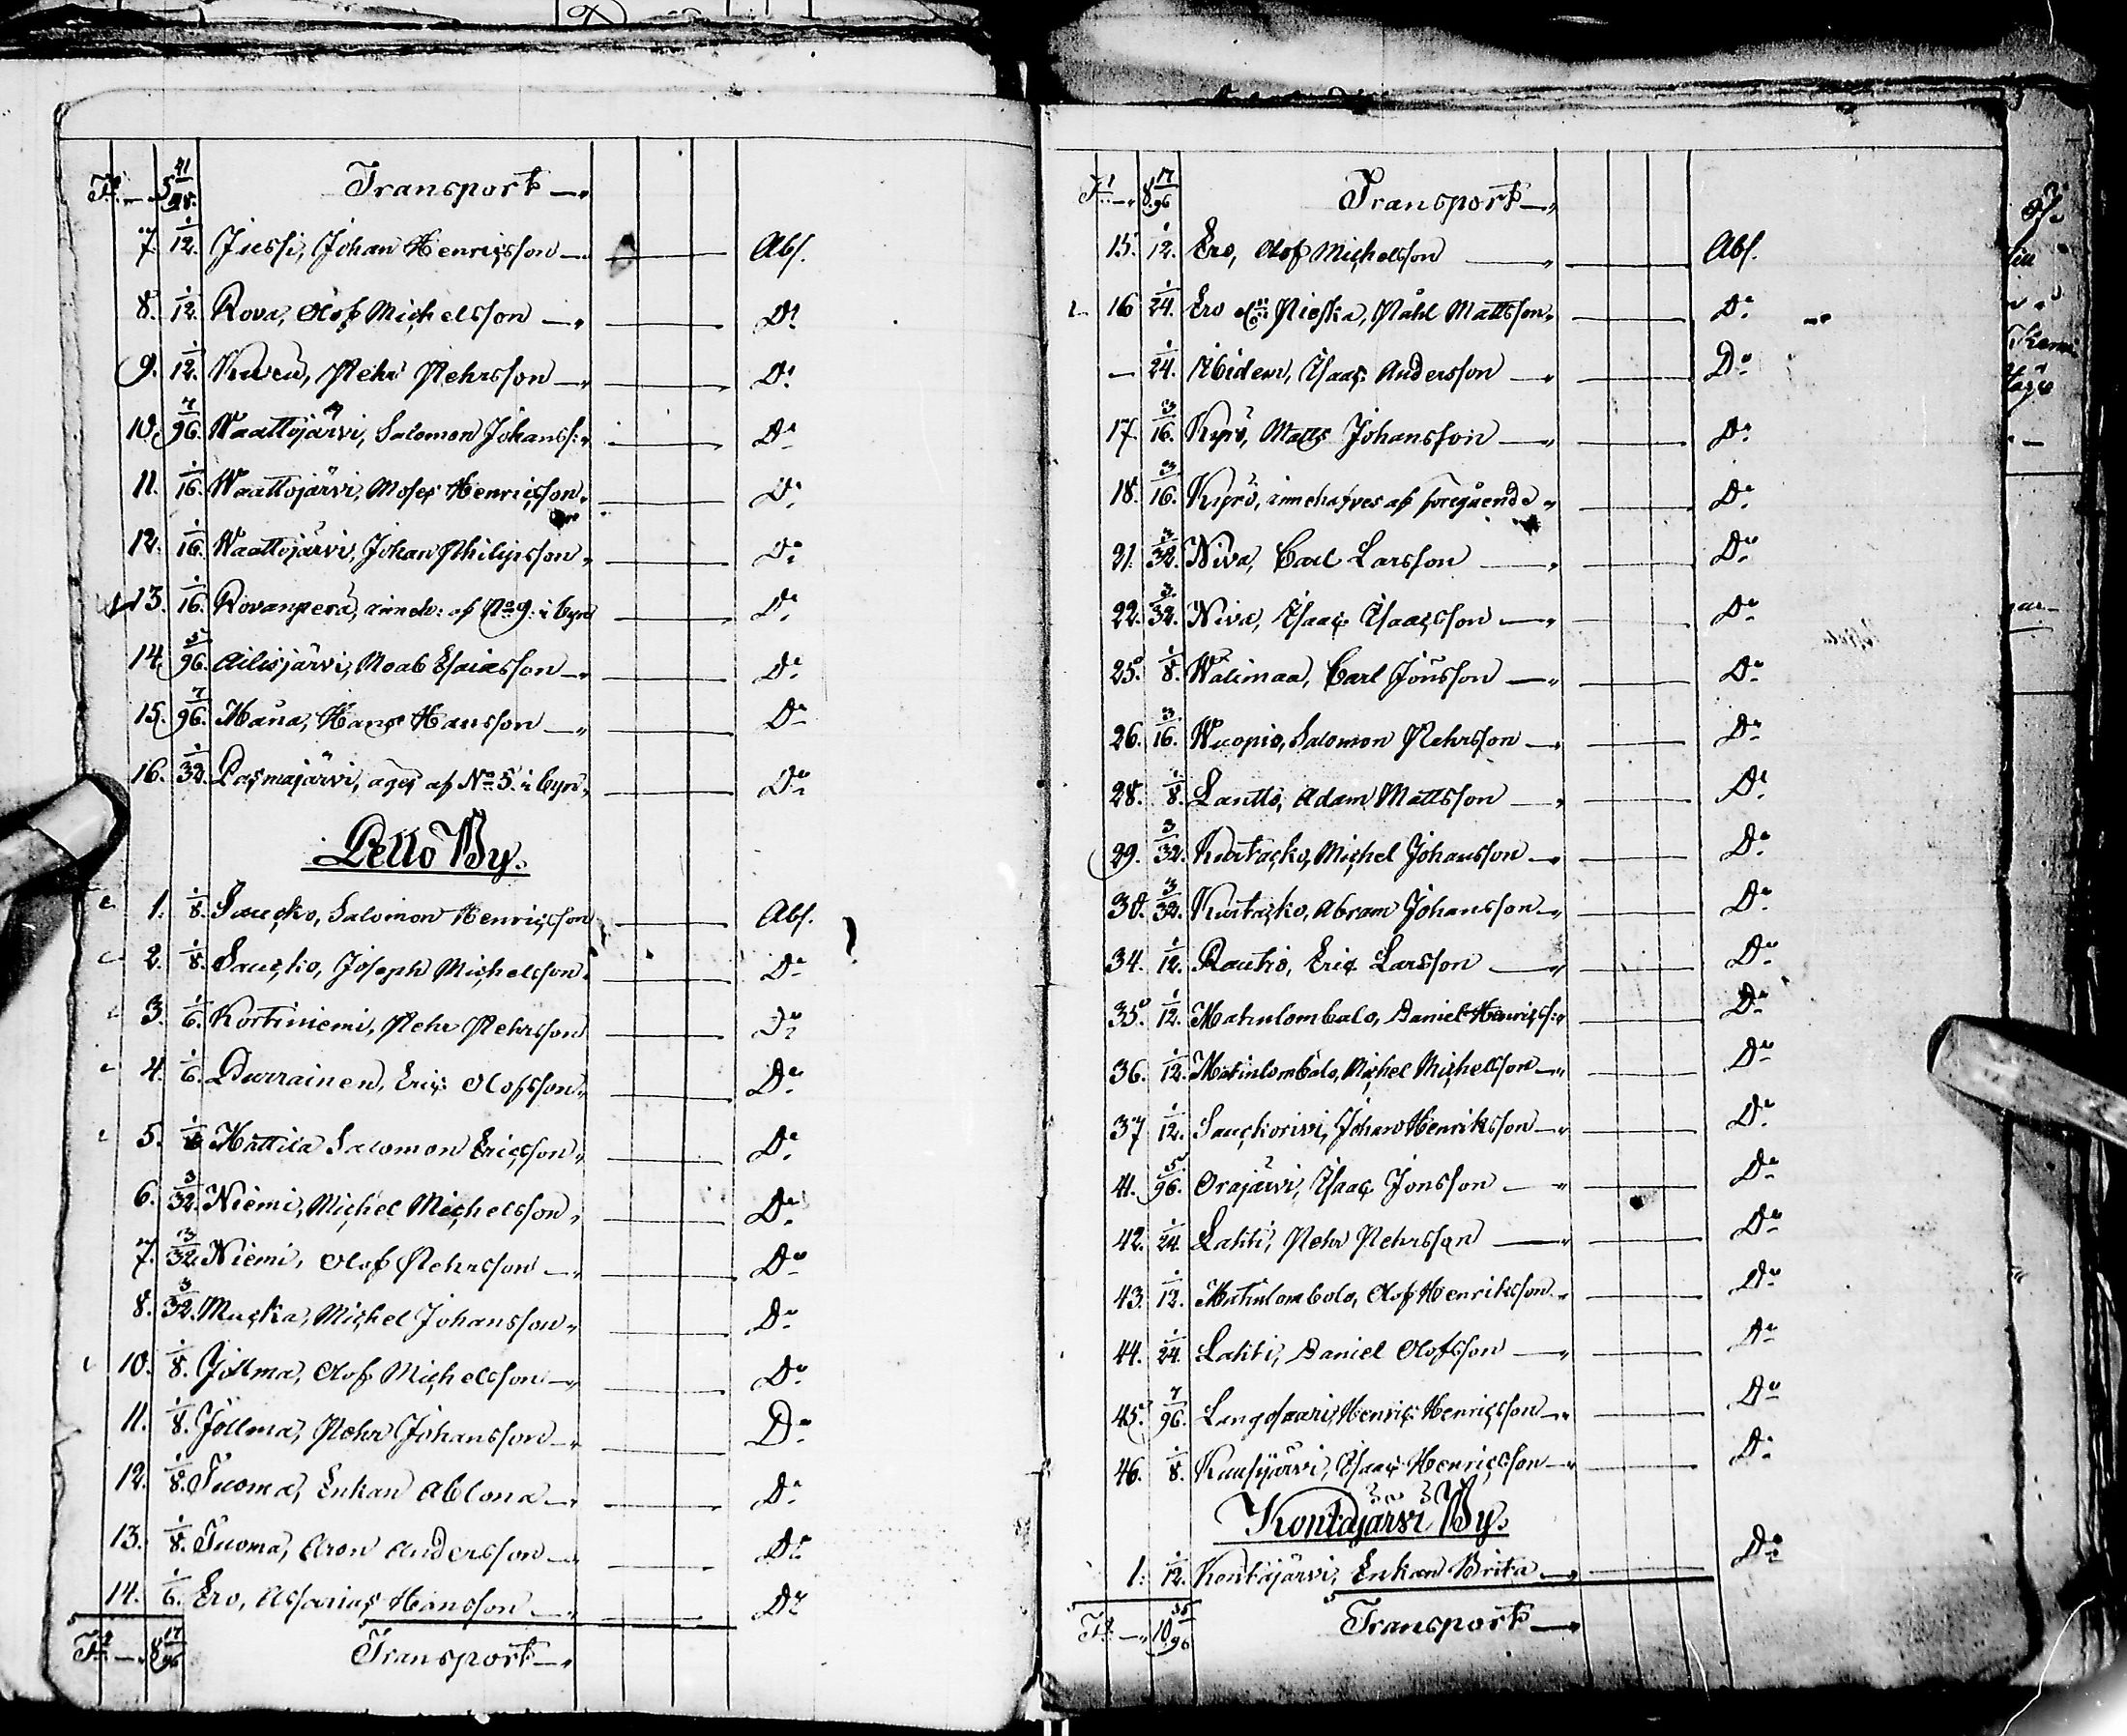 Tr. — 5 41/48. Transport —
7. 1/12. Jussi, Johan Henricsson — Abs.
8. 1/12. Rova, Olof Michelsson — Do
9. 1/12. Pehr Pehrsson — Do
10. 7/96. Waattojärvi, Salomon Johanss: Do
11. 1/16. Waattojärvi, Moses Henricsson Do
12. 1/16. Waattojärvi, Johan Philipsson Do
13. 1/16. Rovanperä, inneh: af No 9. i byn Do
14. 5/96. Ailisjärvi, Moab Esaiasson — Do
15. 7/96. Hans Hansson — Do
16. 1/32. Pasmajärvi, äges af No 5. i byn Do
Pello By.
1. 1/8. Saucko, Salomon Henricsson Abs.
2. 1/8. Saucko, Joseph Michelsson Do
3. 1/6. Kortiniemi, Pehr Pehrsson Do
4. 1/6. Purrainen, Eric Olofsson Do
5. Mattila Salomon Ericsson Do
6. 3/32. Niemi, Michel Michelsson Do
7. 3/32. Niemi, Olof Pehrsson — Do
8. 3/32. Mucka, Michel Johansson Do
10. 1/8. Jollma, Olof Michelsson — Do
11. 1/8. Jollma, Pehr Johansson — Do
12. 1/8. Tuoma, Enkan Ablona — Do
13. 1/8. Tuoma, Aron Andersson — Do
14. 1/6. Ero, Assarias Hansson — Do
Tr. — 8 17/96 Transport —
Tr. — 8. 17/96 Transport —
15. 1/12. Ero, Olof Michelsson — Abs.
16 1/24. Ero Nieska, Påhl Mattsson Do
— 1/24. Ibidem, Isaac Andersson — Do
17. 3/16. Kyrö, Matts Johansson — Do
18. 3/16. Kyrö, innehafves af föregående Do
21. 3/32. Niva, Carl Larsson — Do
22. 3/32. Niva, Isaac Isaacsson — Do
25. 1/8. Wälimaa, Carl Jönsson — Do
26. 3/16. Wuopio, Salomon Pehrsson — Do
28. 1/8. Lantto, Adam Mattsson — Do
29. 3/32. Kurtacko, Michel Johansson — Do
30. 3/32. Kurtacko, Abram Johansson — Do
34. 1/12. Rautio, Eric Larsson — Do
35. 1/12. Matinlombolo, Daniel Henricss: Do
36. 1/12. Matinlombolo, Michel Michelsson — Do
37 1/12. Sauckorivi, Johan Henriksson — Do
41. 5/96. Orajärvi, Isaac Jonsson — Do
42. 1/24. Lahti, Pehr Pehrsson — Do
43. 1/12. Matinlombolo, Olof Henriksson Do
44. 1/24. Lahti, Daniel Olofsson — Do
45. 7/96. Henric Henricsson — Do
46. 1/8. Rausijärvi, Isaac Henricsson — Do
Kontajärvi By.
1. 1/12. Kontajärvi, Enkan Brita — Do
Tr. — 10. 35/96 Transport —